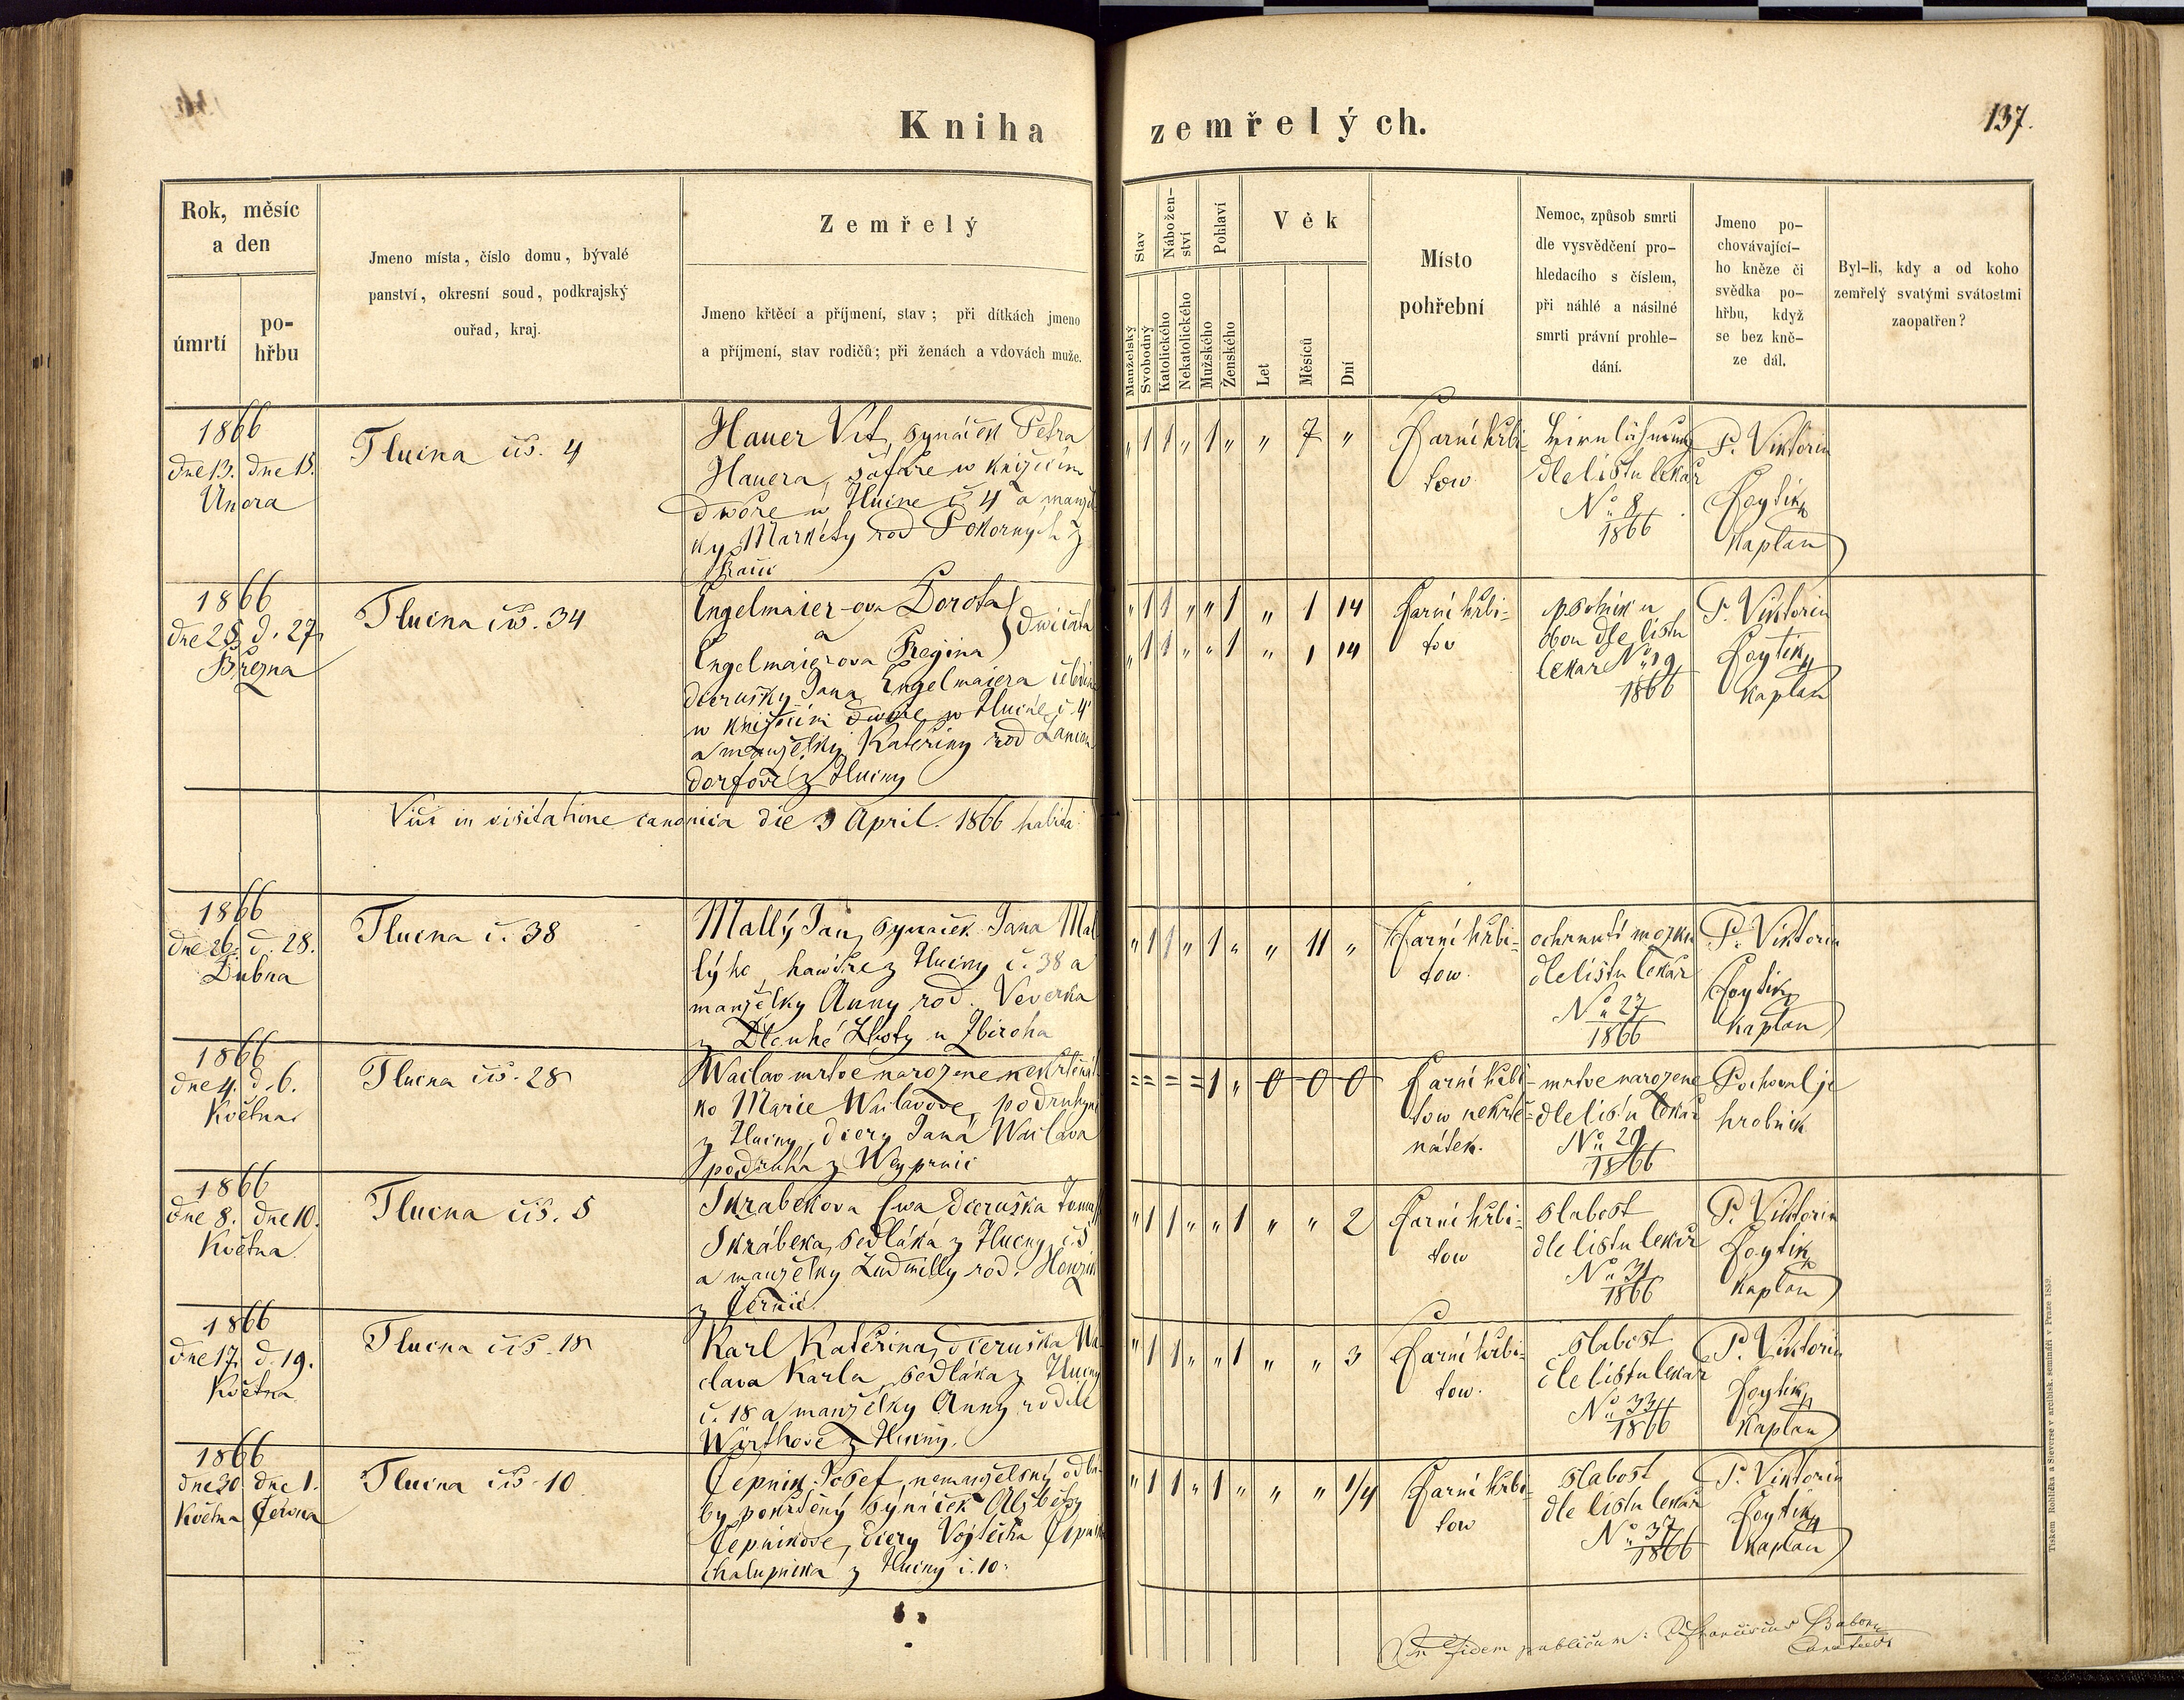 Kniha zemřelých.
137.
Rok, měsíc
a den
úmrtí
po-
hřbu
Jmeno místa, číslo domu, bývalé
panství, okresní soud, podkrajský
ouřad, kraj.
Zemřelý
Jmeno křtěcí a příjmení, stav; při dítkách jmeno
a příjmení, stav rodičů; při ženách a vdovách muže.
Stav
Manželský
Svobodný
Nábožen-
ství
Katolického
Nekatolického
Pohlaví
Mužského
Ženského
Věk
Let
Měsíců
Dní
Místo
pohřební
Nemoc, způsob smrti
dle vysvědčení pro-
hledacího s číslem,
při náhlé a násilné
smrti právní prohle-
dání.
Jmeno po-
chovávající-
ho kněze či
svědka po-
hřbu, když
se bez kně-
ze dál.
Byl-li, kdy a od koho
zemřelý svatými svátostmi
zaopatřen?
1866
dne 13. dne 15.
Unora
Tlucna čis. 4
Hauer Vit, synáček Petra
Hauera, šafáře w knížecím
dwoře w Tlucne č 4 a manžel
ky Markéty rod Pokorných z
„ 1 1 „ 1 „ „ 7 „
Farní hřbi-
tow.
Hirnlähmung
dle listu lekař
No 8
1866
P. Viktorin
Foytik
Kaplan
1866
dne 25. d. 27.
Března
Tlucna čis. 34
Engelmaier-ova Dorota
a
dwičata
Engelmaierova Regina
dcerušky Jana Engelmaiera
w knížecím dwoře w Tlucné č. 4
a manželky Kateřiny rod
dorfove z Tlucny
„ 1 1 „ „ 1 „ 1 14
„ 1 1 „ „ 1 „ 1 14
Farní hřbi-
tov
psotnik u
obou dle listu
lekar No 19
1866
P. Viktorin
Foytik
Kaplan
Vidi in visitatione canonica die 3 April. 1866 habita
1866
dne 26. d. 28.
Dubna
Tlucna č. 38
Mallý Jan, synaček Jana Mal
lýho, hawíře z Tlucny č. 38 a
manželky Anny rod. Veverka
z Dlouhé Lhoty u Zbiroha
„ 1 1 „ 1 „ „ 11 „
Farní hřbi-
tow.
ochrnutí mozku
dle listu lekař
No 27
1866
P. Viktorin
Foytik
Kaplan
1866
dne 4. d. 6.
Května
Tlucna čis. 28
Waclav mrtve narozene nekřtěňát
ko Marie Waclavove, podruhyně
z Tlucny, dcery Jana Waclava
podruha z Weyprnic
= = = = 1 „ 0 0 0
Farní hřbi-
tow nekrtě-
nátek.
mrtve narozene
dle listu lekař
No 29
1866
Pochoval je
hrobnik
1866
dne 8. dne 10.
Května.
Tlucna čis. 5
Skrabekova Ewa dceruška Tomaš
Skrábeka, sedláka z Tlucny č. 5
a manželky Ludmilly rod. Honzik
z Černic.
„ 1 1 „ „ 1 „ „ 2
Farní hřbi-
tow
slabost
dle listu lekař
No 31
1866
P. Viktorin
Foytik
Kaplan
1866
dne 17. d. 19.
Května
Tlucna čis. 18
Karl Kateřina, dceruška Wa
clava Karla, sedláka z Tlucny
č. 18 a manželky Anny rodilé
Wirthove z Tlucny.
„ 1 1 „ „ 1 „ „ 3
Farní hřbi-
tow.
slabost
dle listu lekař
No 33
1866
P. Viktorin
Foytik
Kaplan
1866
dne 30. dne 1.
Května Června
Tlucna čis. 10
Čepnik Josef, nemanželský od ba-
by pokřtěný synáček Alžběty
Čepnikove, dcery Vojtěcha Čepnik
chalupnika z Tlucny č. 10.
„ 1 1 „ 1 „ „ „ 1/4
Farní hřbi-
tow
slabost
dle listu lekař
No 37
1866
P. Viktorin
Foytik
Kaplan
In fidem publicam:
Tiskem Rohlíčka a Sieverse v arcibisk. semináři v Praze 1859.